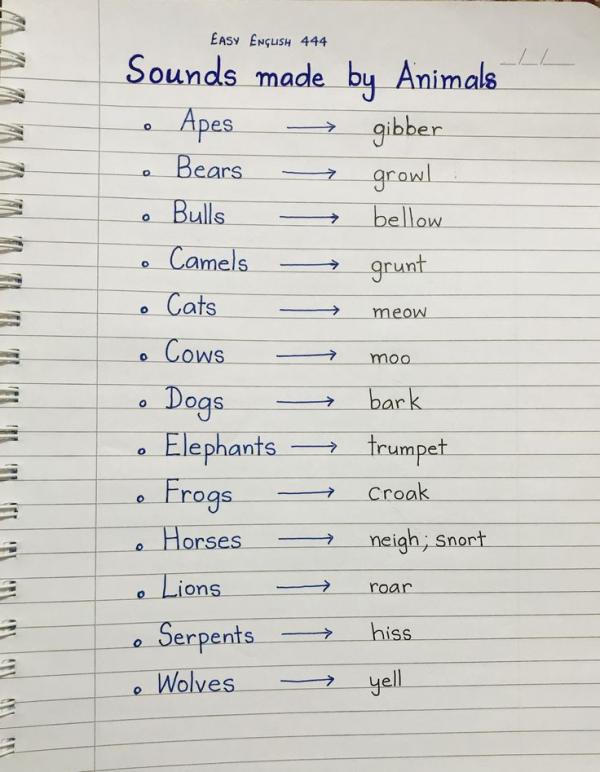 EASY ENGLISH 444
Sounds made by Animals
__/__/__
• Apes → gibber
• Bears → growl
• Bulls → bellow
• Camels → grunt
• Cats → meow
• Cows → moo
• Dogs → bark
• Elephants → trumpet
• Frogs → croak
• Horses → neigh; snort
• Lions → roar
• Serpents → hiss
• Wolves → yell